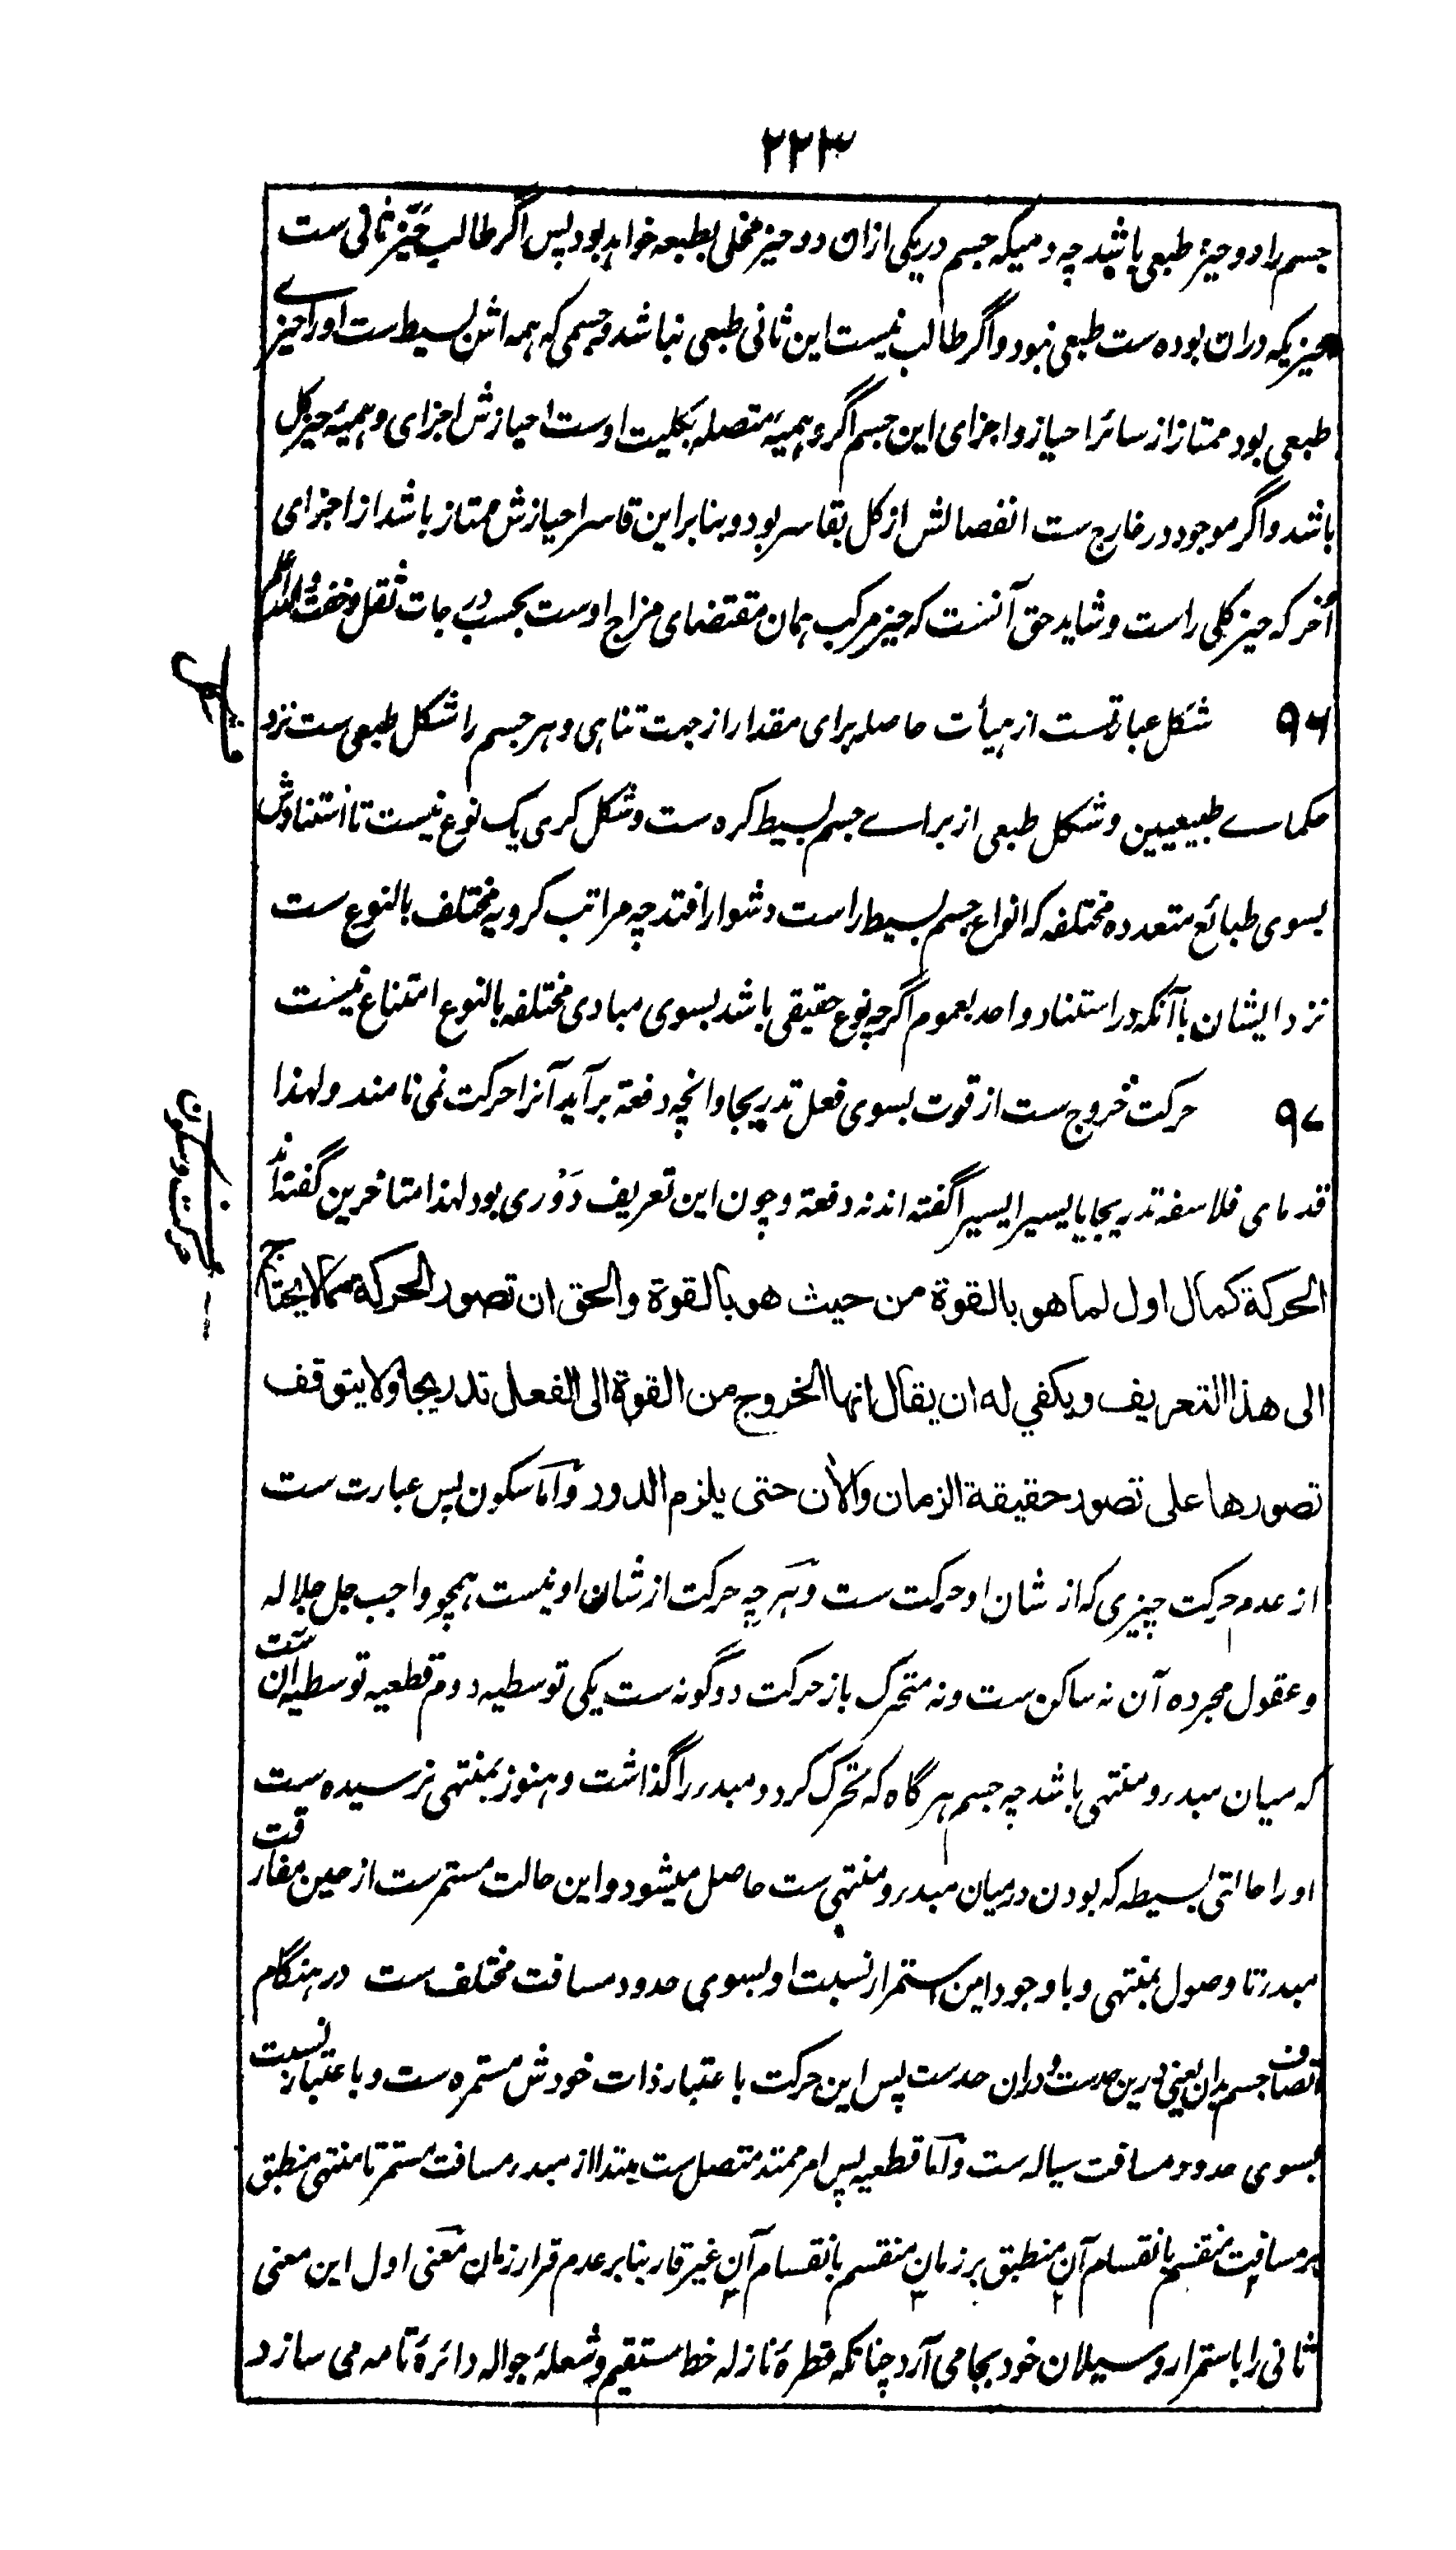 ۲۲۳
جسم را دو حیّز طبعی باشد چه دمیکه جسم در یکی ازان دو حیز مخلی بطبعه خواهد بود پس اگر طالب حَیّز ثانی ست
حیزیکه دران بوده ست طبعی نبود و اگر طالب نیست این ثانی طبعی نباشد و جسمی که همه اش بسیط ست او را حیزے
طبعی بود ممتاز از سائر احیاز و اجزای این جسم اگر وهمیۀ متصله بکلیت اوست احیازش اجزای وهمیۀ حیز کل
باشد و اگر موجود در خارج ست انفصالش از کل بقاسر بود و بنا برین قاسر احیازش ممتاز باشد از اجزای
اُخر که حیز کلی راست و شاید حق آنست که حیز مرکب همان مقتضای مزاج اوست بحسب درجات ثقل و خفت و الله اعلم
شکل
۹۶ شکل عبارتست از هیأت حاصله برای مقدار از جهت تناهی و هر جسم را شکل طبعی ست نزد
حکماے طبیعیین و شکل طبعی از براے جسم بسیط کره ست و شکل کری یک نوع نیست تا استنادش
بسوی طبائع متعدده مختلفه که انواع جسم بسیط راست دشوار افتد چه مراتب کرویه مختلف بالنوع ست
نزد ایشان با آنکه در استناد واحد بعموم اگرچه نوع حقیقی باشد بسوی مبادی مختلفه بالنوع امتناع نیست
حرکت و سکون
۹۷ حرکت خروج ست از قوت بسوی فعل تدریجا و انچه دفعة برآید آنرا حرکت نمی نامند و لهذا
قدمای فلاسفه تدریجا یا یسیرا یسیرا گفته اند نه دفعة و چون این تعریف دَوْری بود لهذا متاخرین گفته اند
الحركة كمال اول لما هو بالقوة من حيث هو بالقوة والحق ان تصور الحركة مما لا يحتاج
الى هذا التعريف ويكفي له ان يقال انها الخروج من القوة الى الفعل تدريجا ولا يتوقف
تصورها على تصور حقيقة الزمان والآن حتى يلزم الدور و اَمّا سکون پس عبارت ست
از عدم حرکت چیزی که از شان او حرکت ست و هَر چه حرکت از شان او نیست همچو واجب جل جلاله
و عقول مجرده آن نه ساکن ست و نه متحرک باز حرکت دو گونه ست یکی توسطیه دوم قطعیه توسطیه آن ست
که میان مبدء و منتهی باشد چه جسم هر گاه که تحرک کرد و مبدء را گذاشت و هنوز بمنتهی نرسیده ست
او را حالتی بسیطه که بودن درمیان مبدء و منتهی ست حاصل میشود و این حالت مستمر ست از حین مفارقت
مبدء تا وصول بمنتهی و با وجود این استمرار نسبت او بسوی حدود مسافت مختلف ست در هنگام
اتصاف جسم بدان یعنی درین حدست و دران حدست پس این حرکت با عتبار ذات خودش مستمره ست و با عتبار نسبت
بسوی حدود مسافت سیاله ست و اَمّا قطعیه پس امر ممتد متصل ست مبتدا از مبدء مسافت مستمر تا منتهی منطبق
بر مسافت منقسم بانقسام آن منطبق بر زمان منقسم بانقسام آن غیر قار بنا بر عدم قرار زمان معنی اول این معنی
ثانی را باستمرار و سیلان خود بجامی آرد چنانکه قطرۀ نازله خط مستقیم و شعلۀ جواله دائرۀ تامه می سازد